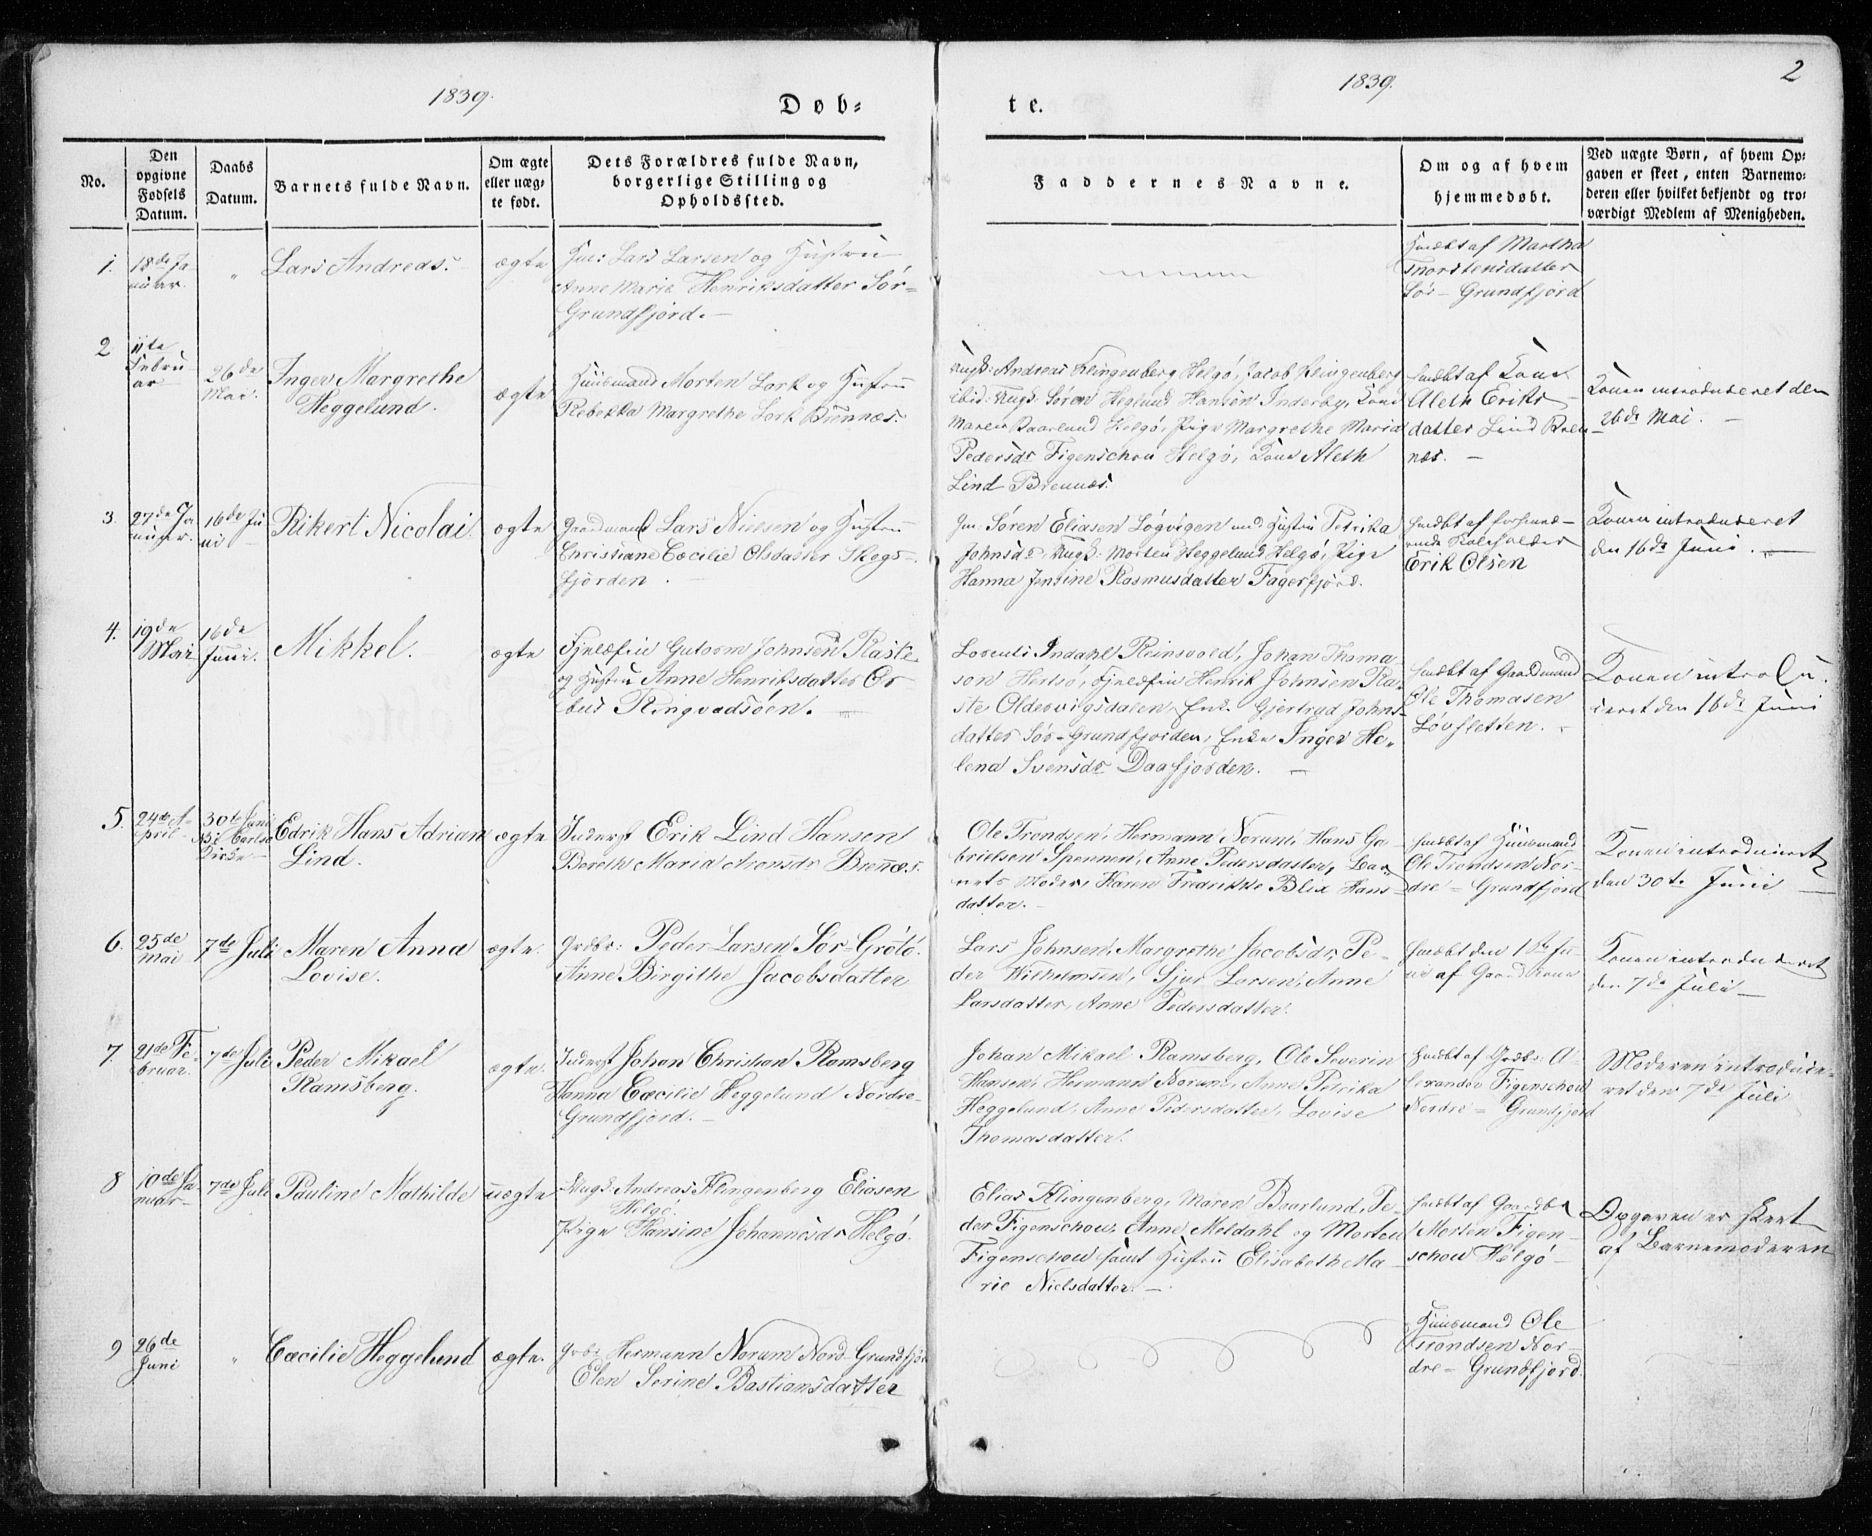 1839.
Døb-
te.
1839.
2
No.
Den
opgivne
Fødsels
Datum.
Daabs
Datum.
Barnets fulde Navn.
Om ægte
eller uæg-
te født.
Dets Forældres fulde Navn,
borgerlige Stilling og
Opholdssted.
Faddernes Navne.
Om og af hvem
hjemmedøbt.
Ved uægte Børn, af hvem Op-
gaven er skeet, enten Barnemo-
deren eller hvilket bekjendt og tro-
værdigt Medlem af Menigheden.
1.
18de Ja
nuar.
"
Lars Andreas.
ægte
Lars Larsen og Hustru
Anne Marie Henriksdatter Sør-
Grundfjord.
hmdøbt af Martha
Thorstensdatter
Sør-Grundfjord
2
11te
Febru
ar
26de
Mai.
Inger Margrethe
Heggelund.
ægte
Huusmand Morten Lork og Hustru
Rebekka Margrethe Lork Brennæs.
Ungk: Andreas Klingenberg Helgø, Jacob Klingenberg
ibid: Ungk: Søren Heglund Hansen Inderby, Kone
Maren Baarlund Helgø, Pige Margrethe Maria
Pedersdr Figenschou Helgø, Kone Aleth
Lind Brennæs.
hmdøbt af Kone
Aleth Eriks-
datter Lind Bren
næs.
Konen introduceret den
26de Mai.
3.
27de Ja
nuar.
16de Ju
ni
Rikert Nicolai.
ægte
Gaardmand Lars Nielsen og Hustru
Christiane Cæcilie Olsdatter Skogs-
fjorden.
Søren Eliasen Løgvigen med Hustru Petrika
Johnsdr. Ungk: Morten Heggelund Helgø, Pige
Hanna Jensine Rasmusdatter Fagerfjord.
hmdøbt af forhenvæ-
rende Skoleholder
Erik Olsen
Konen introduceret
den 16de Juni.
4.
19de
Mai
16de
Juni.
Mikkel.
ægte
Fjeldfin Gutorm Johnsen Raste
og Hustru Anne Henriksdatter Or
bus Ringvadsøen.
Lorents Indahl Reinsvold, Johan Thoma-
son Hersø, Fjeldfin Henrik Johnsen Ra-
ste Oldervigsdalen, Enke Gjertrud Johns-
datter Sør-Grundfjorden, Enke Inger He-
lena Svensdr Daafjorden.
hmdøbt af Gaardmand
Ole Thomasen
Løvsletten.
Konen introdu-
ceret den 16de Juni
5.
24de A
pril
30te Juni
i Carlsø
Kirke
Edrik Hans Adrian
Lind.
ægte
Inderst Erik Lind Hansen
Bereth Maria Aronsdr Brennæs.
Ole Trondsen, Hermann Norum, Hans Ga-
brielsen Spennen, Anne Pedersdatter, Bar-
nets Moder, Karen Fredrikke Blix Hans-
datter.
hmdøbt af Huusmand
Ole Trondsen Nor-
dre-Grundfjord
Konen introduceret
den 30te Juni
6.
25de
Mai
7de Juli
Maren Anna
Lovise.
ægte.
Grdbr: Peder Larsen Sør-Grøtø.
Anne Birgithe Jacobsdatter
Lars Johnsen, Margrethe Jacobsdr, Pe-
der Wilhelmsen, Sjur Larsen, Anne
Larsdatter, Anne Pedersdatter.
hmdøbt den 1ste Ju-
ni af Gaardkone
Konen introduceret
den 7de Juli
7.
21de Fe-
bruar.
7de Juli
Peder Mikael
Ramsberg.
ægte.
Inderst Johan Christian Ramsberg
Hanna Cæcilie Heggelund Nordre-
Grundfjord.
Johan Mikael Ramsberg, Ole Severin
Hansen, Hermann Norum, Anne Petrika
Heggelund, Anne Pedersdatter, Lovise
Thomasdatter.
hmdøbt af Grdbr: A-
lexander Figenschou
Nordre-Grundfjord
Moderen introduce-
ret den 7de Juli
8
10de Ja-
nuar
7de Juli
Pauline Mathilde
uægte
Ungk: Andreas Klingenberg Eliasen
Helgø.
Pige Hansine Johannesdr Helgø.
Elias Klingenberg, Maren Baarlund, Pe-
der Figenschou, Anne Meldahl og Morten
Figenschou samt Hustru Elisabeth Ma-
rie Nielsdatter.
hmdøbt af Gaardbr
Morten Figen-
schou Helgø
Opgaven er skeet
af Barnemoderen
9
26de
Juni
"
Cæcilie Heggelund
ægte.
Grbr Hermann Norum Nord-Grundfjord
Elen Serine Bastiansdatter
Huusmand Ole
Trondsen Nor-
dre-Grundfjord.